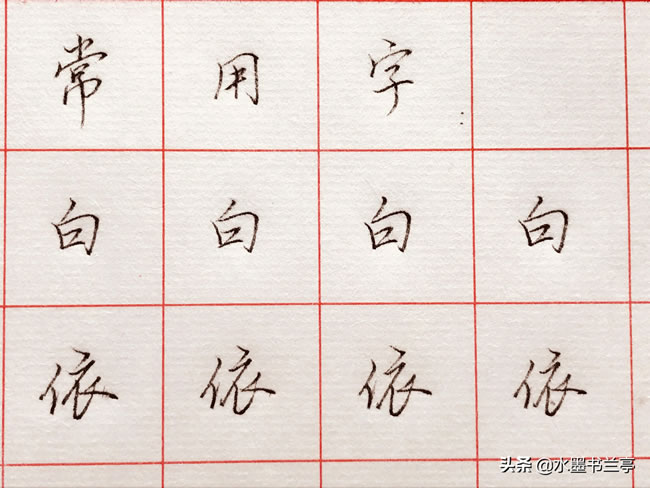 常用字：
白白白白
依依依依
头条 @水墨书兰亭